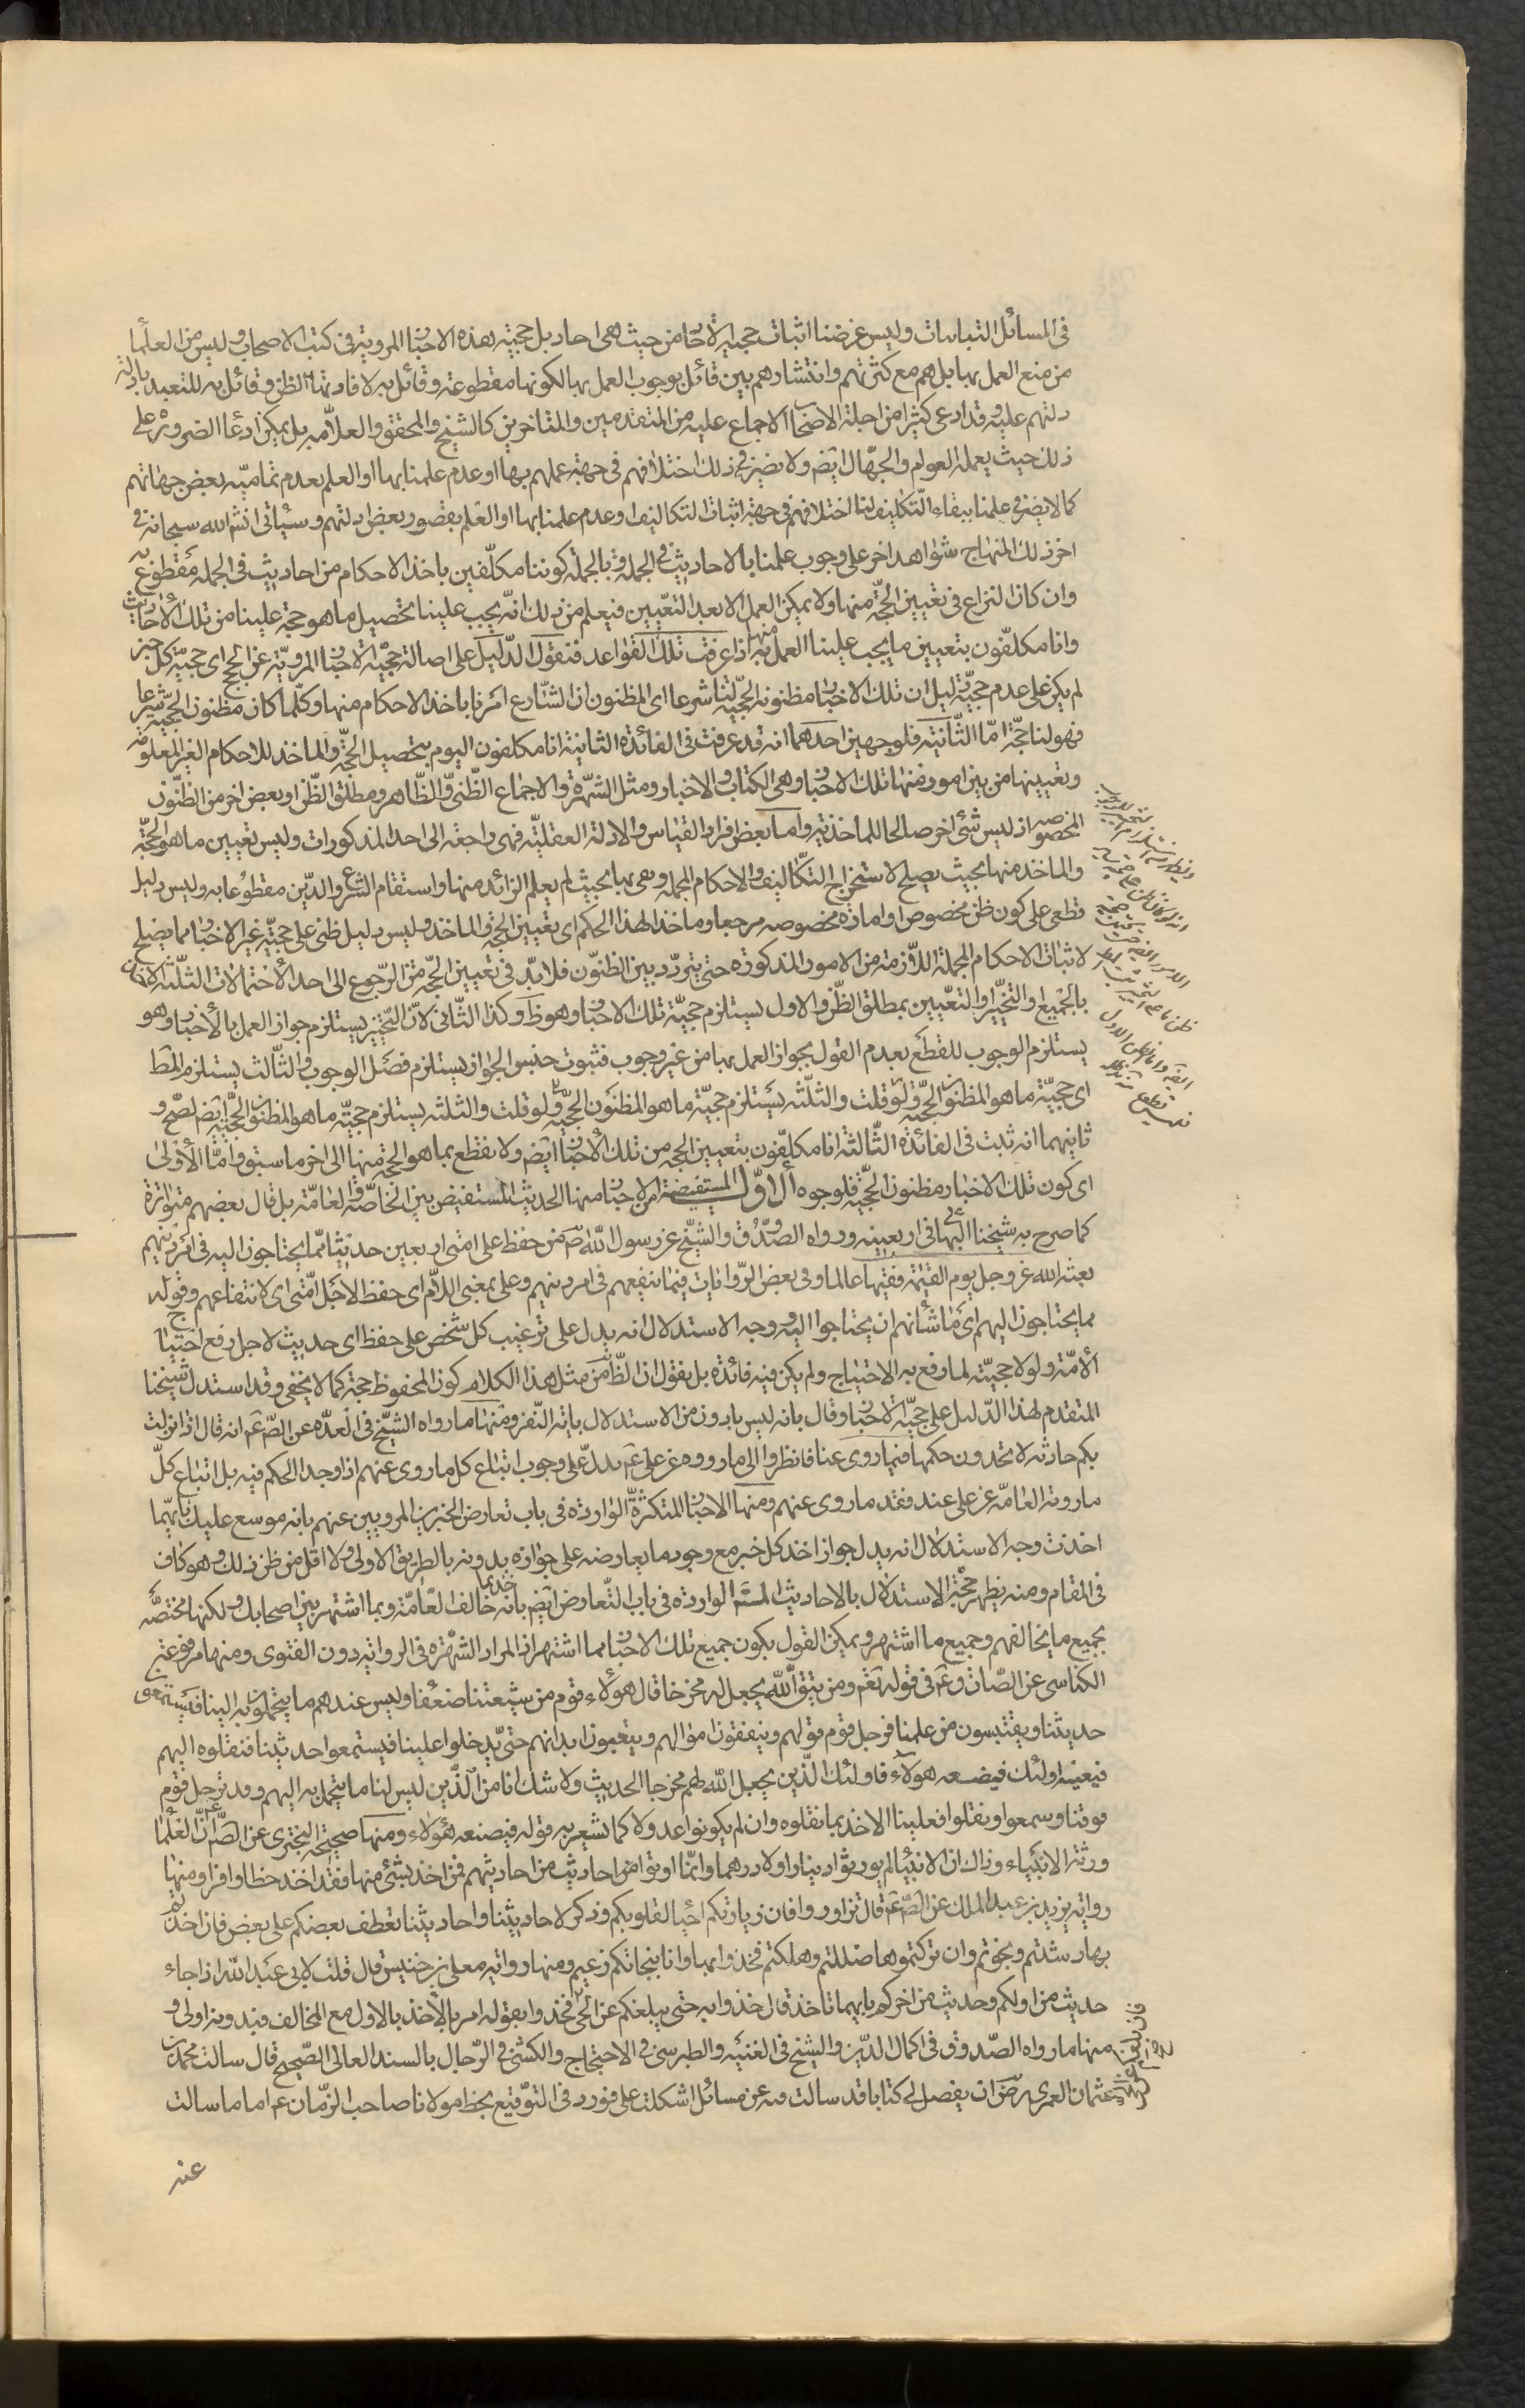 فى المسائل التباينات وليس غرضنا اثبات حجية الاخبار من حيث هى احاد بل حجية هذه الاخبار المروية فى كتب الاصحاب وليس من العلما
من منع العمل بها بل هم مع كثرتهم وانتشارهم بين قائل بوجوب العمل بها لكونها مقطوعة وقائل به لافادتها الظن وقائل به للتعبد بادلة
دلتهم عليه وقد ادعى كثيرا من اجلة الاصحاب الاجماع عليه من المتقدمين والمتاخرين كالشيخ والمحقق والعلامه بل يمكن ادعا الضرورة على
ذلك حيث يعمله العوام والجهال ايض ولا يضير فى ذلك اختلافهم فى جهة عملهم بها او عدم علمنا بها او العلم بعدم تمامية بعض جهاتهم
كما لا يضر فى علمنا ببقاء التكليف لنا اختلافهم فى جهة اثبات التكاليف او عدم علمنا بها او العلم بقصور بعض ادلتهم وسياتى انشاء الله سبحانه فى
اخر ذلك المنهاج شواهد اخر على وجوب علمنا بالاحاديث فى الجملة وبالجملة كوننا مكلفين باخذ الاحكام من احاديث فى الجملة مقطوع به
وان كان النزاع فى تعيين الحجة منها ولا يمكن العمل الا بعد التعيين فيعلم من ذلك انه يجب علينا تحصيل ما هو حجة علينا من تلك الاحاديث
وانا مكلفون بتعيين ما يجب علينا العمل به منها اذا عرفت تلك القواعد فنقول الدليل على اصالة حجية الاخبار المروية عن الحجج اى حجية كل خبر
لم يكن على عدم حجيته دليل ان تلك الاخبار مظنونة الحجية لنا شرعا اى المظنون ان الشارع امرنا باخذ الاحكام منها وكلما كان مظنون الحجية شرعا
فهو لنا حجة اما الثانية فلوجهين احدهما انه قد عرفت فى الفائدة الثانية انا مكلفون اليوم بتحصيل الحجة والماخذ للاحكام الغير المعلومة
وتعيينها من بين امور منها تلك الاخبار وهى الكتاب والاخبار ومثل الشهرة والاجماع الظنى والظاهر ومطلق الظن او بعض اخر من الظنون
المخصوصه اذ ليس شئ اخر صالحا للماخذية واما بعض افراد القياس والادلة العقلية فهى راجعة الى احد المذكورات وليس تعيين ما هو الحجة
والماخذ منها بحيث يصلح لاستخراج التكاليف والاحكام المجملة وهى بها بحيث لم يعلم الزائد منها واستقام الشرع والدين مقطوعا به وليس دليل
قطعى على كون ظن مخصوص او امارة مخصوصه مرجعا وماخذا لهذا الحكم اى تعيين الحجة والماخذ وليس دليل ظنى على حجية غير الاخبار مما يصلح
لاثبات الاحكام المجملة اللازمة من الامور المذكورة حتى يتردد بين الظنون فلا بد فى تعيين الحجة من الرجوع الى احد الاحتمالات الثلثة الاخذ
بالجميع او التخيير او التعيين بمطلق الظن والاول يستلزم حجية تلك الاخبار وهو ظ وكذا الثانى لان التخيير يستلزم جواز العمل بالاخبار وهو
يستلزم الوجوب للقطع بعدم القول بجواز العمل بها من غير وجوب فثبوت جنس الجواز يستلزم فصل الوجوب والثالث يستلزم المط
اى حجية ما هو المظنون الحجية ولو قلت والثلثه يستلزم حجية ما هو المظنون الحجية ولو قلت والثلثه يستلزم حجية ما هو المظنون الحجية ايض لصح و
ثانيهما انه ثبت فى الفائدة الثالثة انا مكلفون بتعيين الحجة من تلك الاخبار ايضم ولا نقطع بما هو الحجة منها الى اخر ما سبق واما الاولى
اى كون تلك الاخبار مظنون الحجية فلوجوه الاول المستفيضة من الاخبار منها الحديث المستفيض بين الخاصة والعامة بل قال بعضهم متواترة
كما صرح به شيخنا البهائى فى اربعينه ورواه الصدوق والشيخ عن رسول الله ص من حفظ على امتى اربعين حديثا مما يحتاجون اليه فى امر دينهم
بعثه الله عز وجل يوم القيمة فقيها عالما وفى بعض الروايات فيما ينفعهم فى امر دينهم وعلى بمعنى اللام اى حفظ لاجل امتى اى لانتفاعهم وقوله
مما يحتاجون اليهم اى ما شانهم ان يحتاجوا اليه ووجه الاستدلال انه يدل على ترغيب كل شخص على حفظ اى حديث لاجل رفع احتياج
الامة ولولا حجيته لما رفع به الاحتياج ولم يكن فيه فائدة بل نقول ان الظ من مثل هذا الكلام كون المحفوظ حجة كما لا يخفى وقد استدل شيخنا
المتقدم لهذا الدليل على حجية الاخبار وقال بانه ليس بادون من الاستدلال باية النفر ومنها ما رواه الشيخ فى العده عن الص عم انه قال اذا نزلت
بكم حادثه لا تجدون حكمها فيما روى عنا فانظروا الى ما رووه عن على عم يدل على وجوب اتباع كل ما روى عنهم اذا وجد الحكم فيه بل اتباع كل
ما روته العامه عن على عند فقد ما روى عنهم ومنها الاخبار المتكثرة الواردة فى باب تعارض الخبرين المرويين عنهم بانه موسع عليك بايهما
اخذت وجه الاستدلال انه يدل جواز اخذ كل خبر مع وجود ما يعارضه على جوازه بدونه بالطريق الاولى ولا اقل من ظن ذلك وهو كاف
فى المقام ومنه يظهر صحة الاستدلال بالاحاديث الواردة فى باب التعارض ايضم بانه خذ بما خالف العامة وبما اشتهر بين اصحابك ولكنها مختصة
بجميع ما يخالفهم وجميع ما اشتهر ويمكن القول بكون جميع تلك الاخبار مما اشتهر اذ المراد الشهرة فى الرواية دون الفتوى ومنها مرفوعة
الكناسى عن الصادق عم فى قوله تعم ومن يتق الله يجعل له مخرجا قال هولاء قوم من شيعتنا ضعفا وليس عندهم ما يتحملون به الينا فيستمعون
حديثنا ويقتبسون من علمنا فرحل قوم فوقهم وينفقون اموالهم ويتعبون ابدانهم حتى يدخلوا علينا فيستمعوا حديثنا فنقلوه اليهم
فيعيه اولئك فيضيعه هولاء فاولئك الذين يجعل الله لهم مخرجا الحديث ولا شك انا من الذين ليس لنا ما يتحمل به اليهم وقد ترحل قوم
فوقنا وسمعوا ونقلوا فعلينا الاخذ بما نقلوه وان لم يكونوا عدولا كما يشعر به قوله فيضيعه هولاء ومنها صحيحة البخترى عن الص عم ان العلما
ورثة الانبياء وذاك ان الانبيا لم يورثوا دينارا ولا درهما وانما اورثوا احاديث من احاديثهم فمن اخذ بشئ منها فقد اخذ حظا وافرا ومنها
رواية يزيد بن عبد الملك عن الص عم قال تزاوروا فان زيارتكم احيا لقلوبكم وذكر لاحاديثنا واحاديثنا تعطف بعضكم على بعض فان اخذتم
بها رشدتم ونجوتم وان تركتموها ضللتم وهلكتم فخذوا بها وانا بنجاتكم زعيم ومنها رواية معلى بن خنيس قال قلت لابى عبد الله اذا جاء
حديث من اولكم وحديث من اخركم بايهما ناخذ قال خذوا به حتى يبلغكم عن الحى فخذوا بقوله امر بالاخذ بالاول مع المخالف فبدونه اولى و
منها ما رواه الصدوق فى اكمال الدين والشيخ فى الغيبة والطبرسى فى الاحتجاج والكشى فى الرجال بالسند العالى الصحيح قال سالت محمد بن
عثمان العمرى رض ان يوصل لى كتابا قد سالت فيه عن مسائل اشكلت على فورد فى التوقيع بخط مولانا صاحب الزمان عم اما ما سالت
عنه